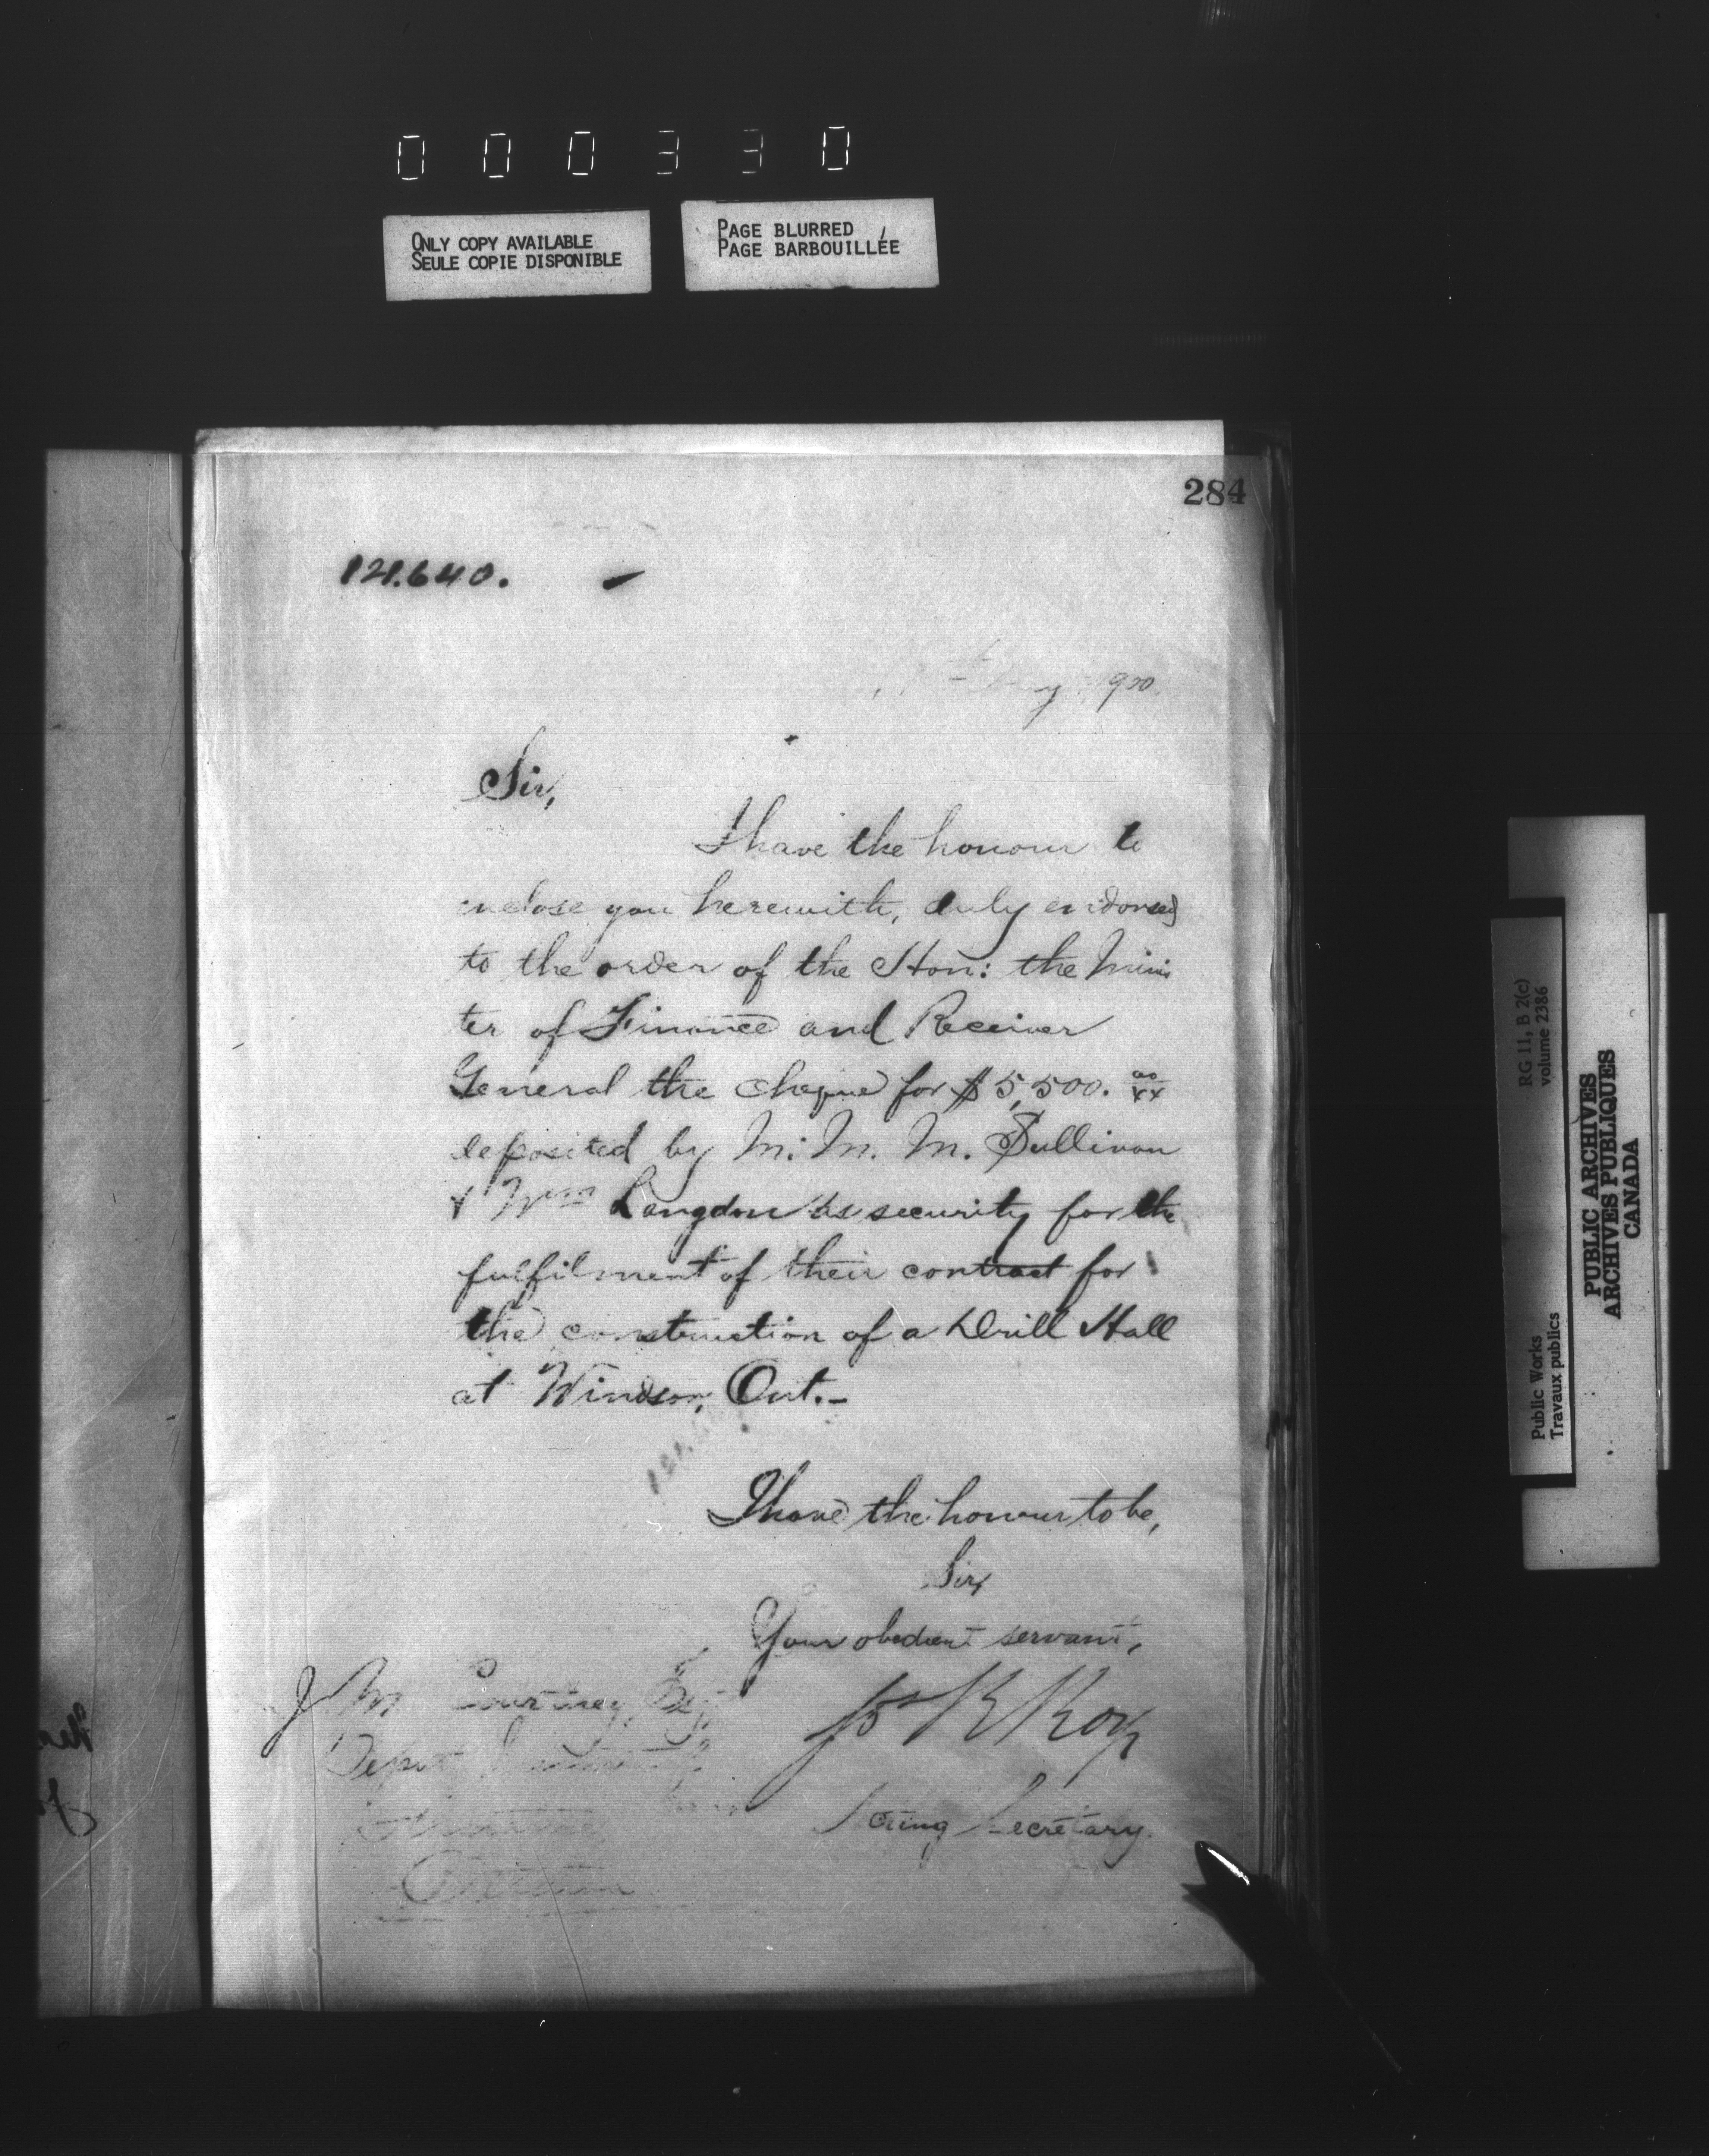 0 0 0 3 3 0
ONLY COPY AVAILABLE
SEULE COPIE DISPONIBLE
PAGE BLURRED
PAGE BARBOUILLÉE
284
121.640.
1900
Sir,
I have the honour to
enclose you herewith, duly endorsed
to the order of the Hon: the Minis
ter of Finance and Receiver
General the cheque for $5,500. 00/xx
deposited by M. M. M. Sullivan
& Wm Langdon as security for the
fulfilment of their contract for
the construction of a Drill Hall
at Windsor, Ont.-
I have the honour to be,
Sir,
Your obedient servant,
J M Courtney, Esq
Jos R Roy
Acting Secretary.
RG 11, B 2(c)
volume 2386
Public Works
Travaux publics
PUBLIC ARCHIVES
ARCHIVES PUBLIQUES
CANADA